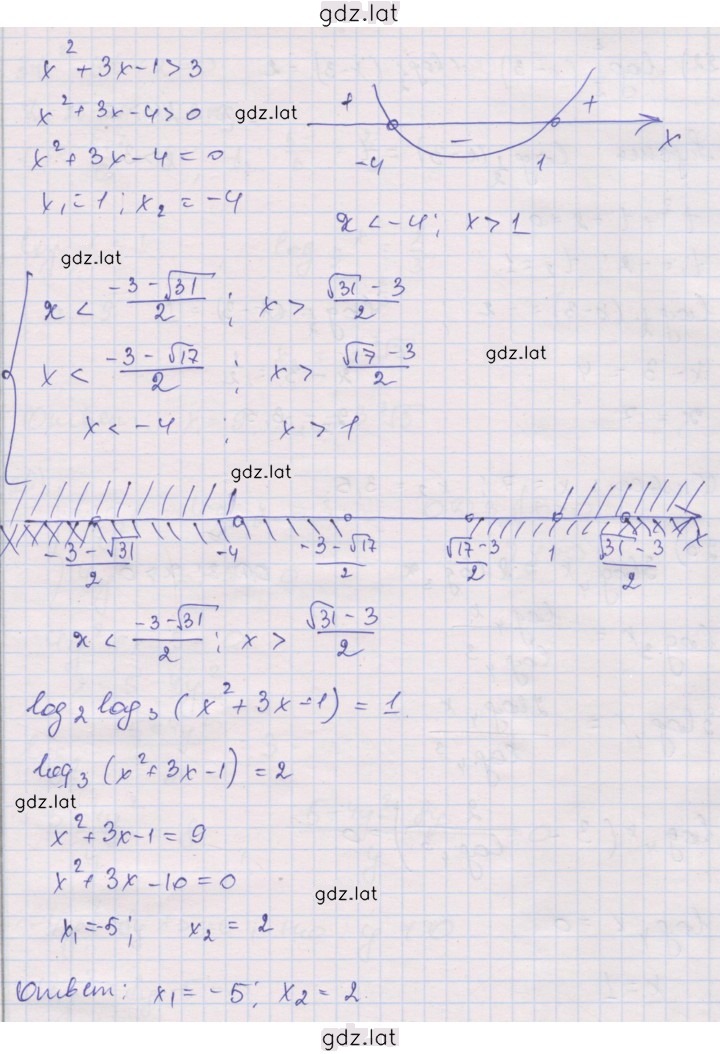 gdz.lat
x² + 3x - 1 > 3
x² + 3x - 4 > 0
gdz.lat
+ - + x
-4 1
x² + 3x - 4 = 0
x₁ = 1 ; x₂ = -4
x < -4 ; x > 1
gdz.lat
x < (-3 - √31)/2 ; x > (√31 - 3)/2
x < (-3 - √17)/2 ; x > (√17 - 3)/2
gdz.lat
x < -4 ; x > 1
gdz.lat
(-3 - √31)/2 -4 (-3 - √17)/2 (√17 - 3)/2 1 (√31 - 3)/2 x
x < (-3 - √31)/2 ; x > (√31 - 3)/2
log₂ log₃ (x² + 3x - 1) = 1
log₃ (x² + 3x - 1) = 2
gdz.lat
x² + 3x - 1 = 9
x² + 3x - 10 = 0
gdz.lat
x₁ = -5 ; x₂ = 2
Ответ: x₁ = -5 ; x₂ = 2.
gdz.lat